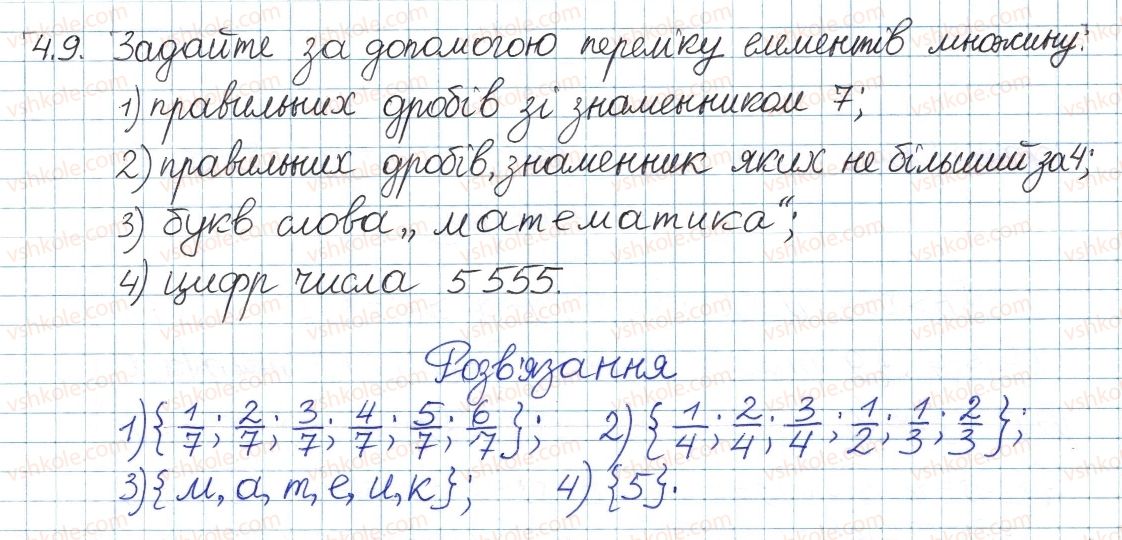 4.9. Задайте за допомогою переліку елементів множину:
1) правильних дробів зі знаменником 7;
2) правильних дробів, знаменник яких не більший за 4;
3) букв слова „математика“;
4) цифр числа 5555.
Розв'язання
1) {1/7; 2/7; 3/7; 4/7; 5/7; 6/7}; 2) {1/4; 2/4; 3/4; 1/2; 1/3; 2/3};
3) {м, а, т, е, и, к}; 4) {5}.
vshkole.com